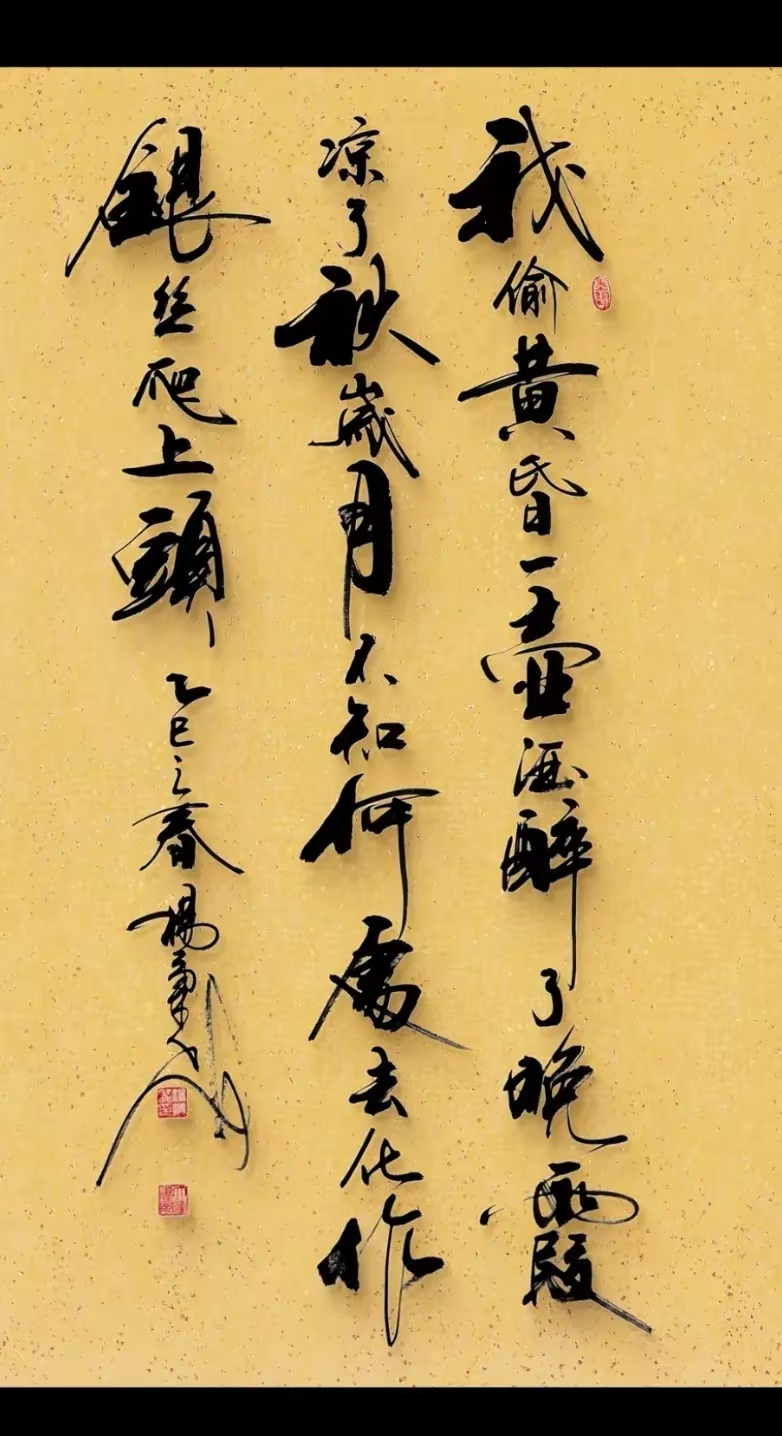 我偷黄昏一壶酒醉了晚霞
凉了秋歲月不知何處去化作
銀丝爬上頭乙巳之春楊